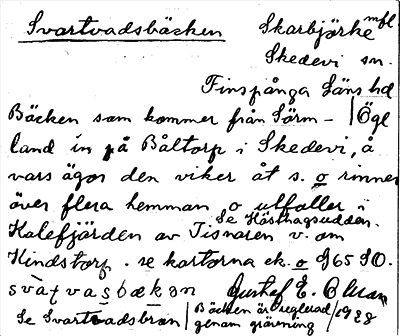 Svartvadsbäcken Skarbjörke mfl
Skedevi sn.
Finspånga Läns hd
Bäcken som kommer från Sörm- Ögl
land in på Båltorp i Skedevi, å
vars ägor den viker åt s. o rinner
över flera hemman o utfaller i
Se Hästhagsudden.
Kalefjärden av Tisnaren v. om
Hindstorp. se kartorna ek. o G65 SO.
Gustaf E. Olsson
Se Svartvadsbron Bäcken är reglerad 1928
genom grävning